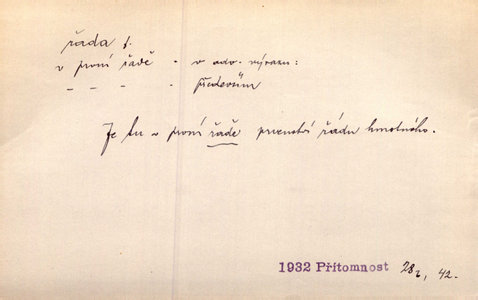 řada f.
v první řadě - v adv. výrazu:
- - - - především
Je tu v první řadě prvenství řádu hmotného.
1932 Přítomnost 28, 42.